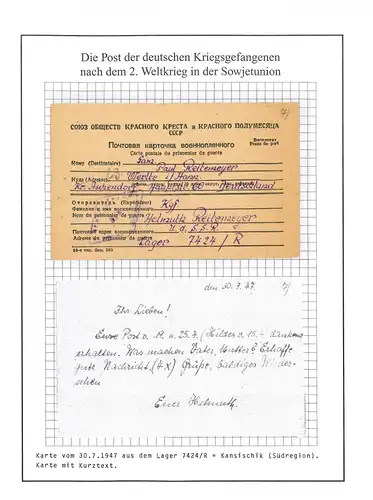 Die Post der deutschen Kriegsgefangenen
nach dem 2. Weltkrieg in der Sowjetunion
7)
СОЮЗ ОБЩЕСТВ КРАСНОГО КРЕСТА и КРАСНОГО ПОЛУМЕСЯЦА
СССР
Почтовая карточка военнопленного
Carte postale du prisonnier de guerre
Бесплатно
Franc de port
Кому (Destinataire) Fam.
Paul Reitemeyer
Куда (Adresse) Werlte
Deutschland
Отправитель (Expéditeur) Kgf
Фамилия и имя военнопленного
Nom du prisonnier de guerre Helmuth Reitemeyer
Почтовый адрес военнопленного U.d.S.S.R.
Adresse du prisonnier de guerre Lager 7424/R
den 30.7.47. 7)
Ihr Lieben!
Eure Post v. 19. u. 25.7./Hildes v. 15.7. dankend
erhalten. Was machen Vater, Mutter? Erhoffe
gute Nachricht (4x) Grüße, baldiges Wieder-
sehen
Euer Helmuth.
Karte vom 30.7.1947 aus dem Lager 7424/R = Kansischik (Südregion).
Karte mit Kurztext.